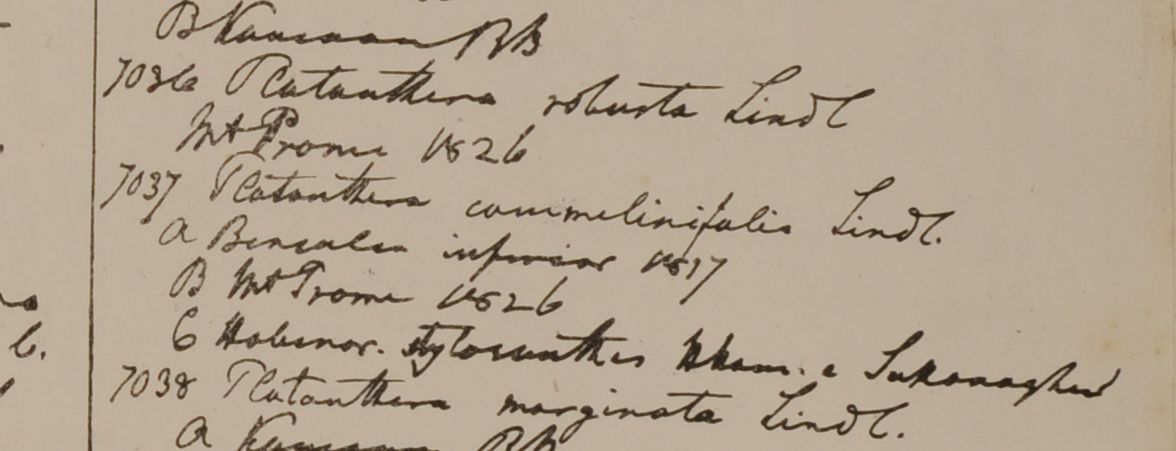 B Kamaon RB
7036 Platanthera robusta Lindl
Mt Prome 1826
7037 Platanthera commelinifolia Lindl.
A Bengalia inferior 1817
B Mt Prome 1826
C Habenar. stylosanthes Hham. e
7038 Platanthera marginata Lindl.
A Kamaon RB
b.